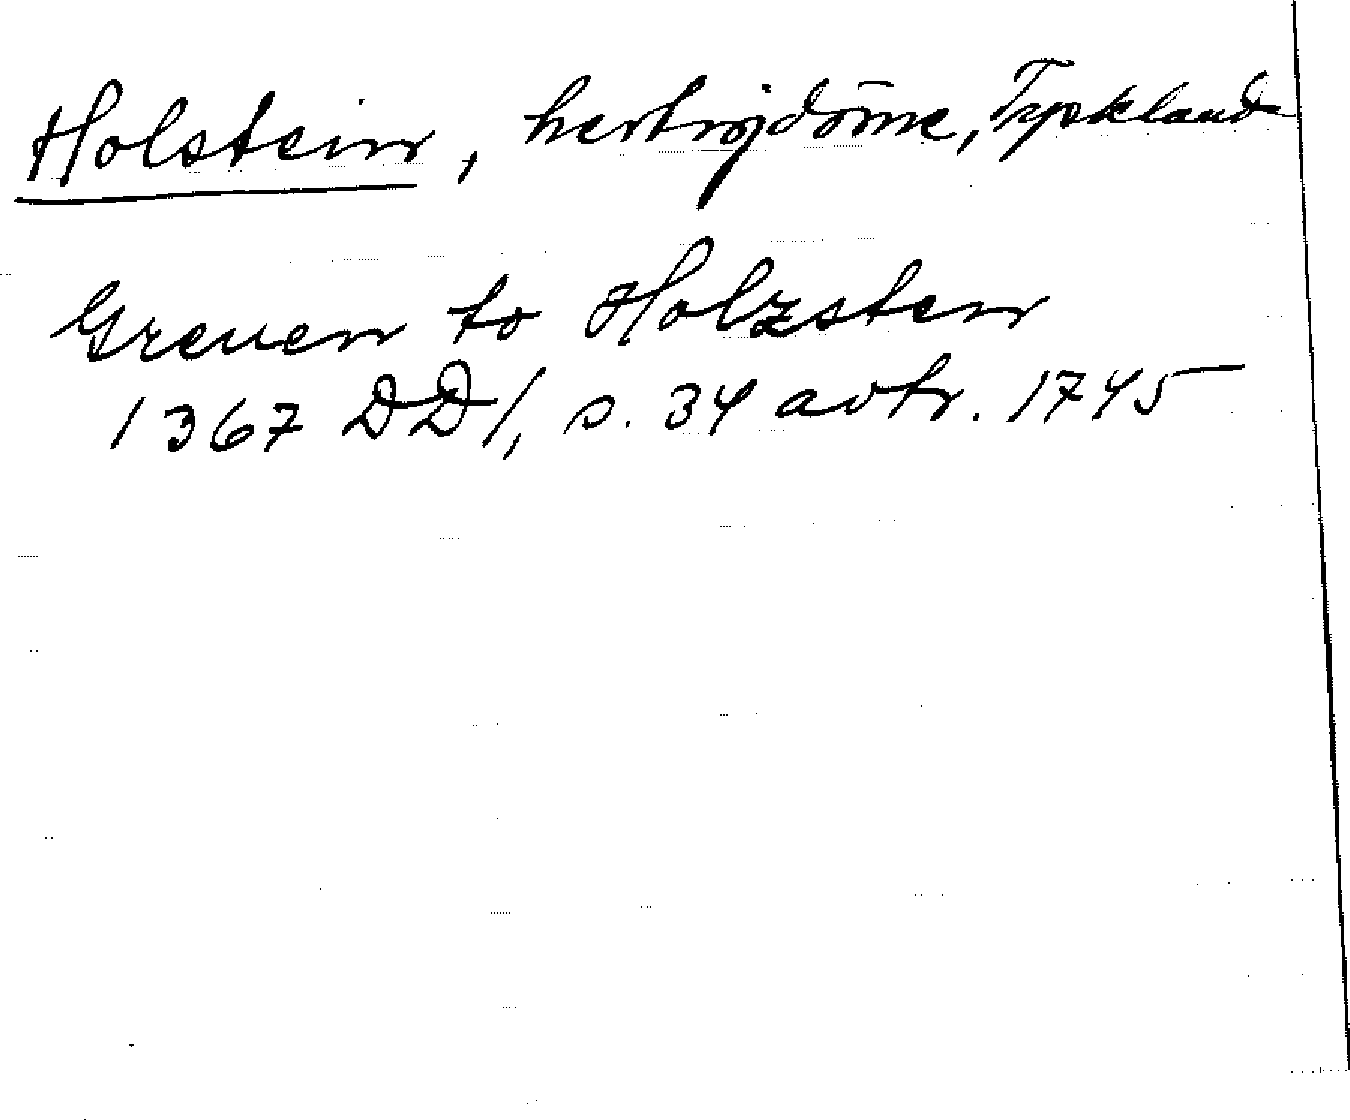 Holstein, hertigdöme, Tyskland
Greuen to Holzsten
1367 DD1, s. 34 avtr. 1745